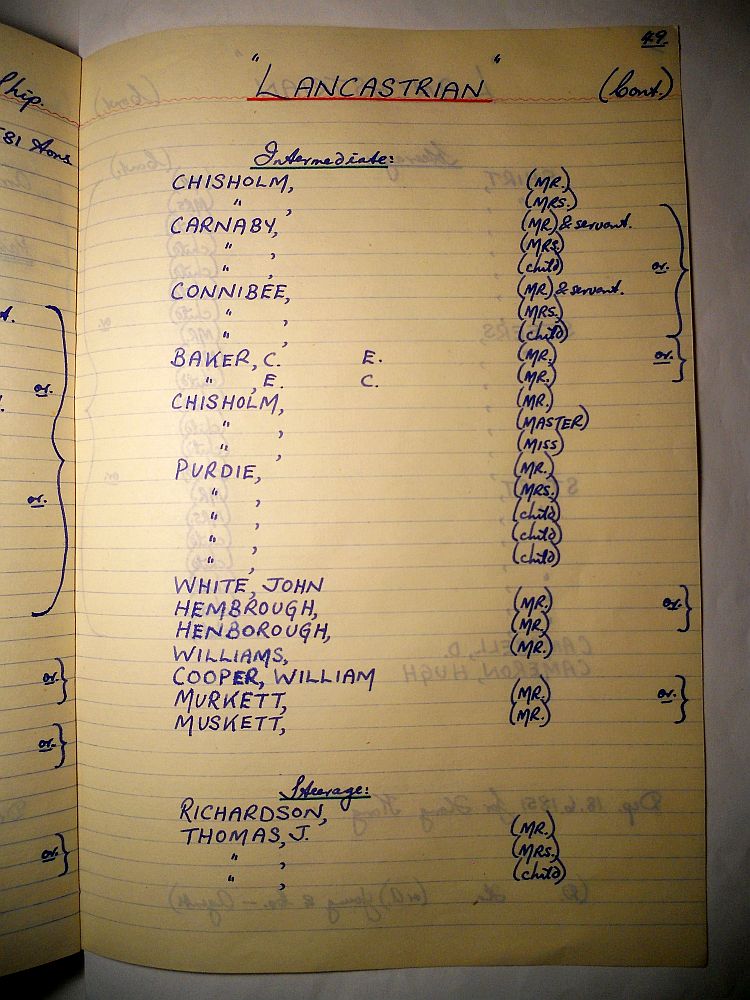 49
"LANCASTRIAN" (Cont.)
Intermediate:
CHISHOLM, (MR.)
" , (MRS.)
CARNABY, (MR) & servant.
" , (MRS.)
" , (child) or.
CONNIBEE, (MR) & servant.
" , (MRS.)
" , (child)
BAKER, C. E. (MR.) or.
" , E. C. (MR.)
CHISHOLM, (MR.)
" , (MASTER)
" , (MISS)
PURDIE, (MR.)
" , (MRS.)
" , (child)
" , (child)
" , (child)
WHITE, JOHN
HEMBROUGH, (MR.) or.
HENBOROUGH, (MR.)
WILLIAMS, (MR.)
COOPER, WILLIAM
MURKETT, (MR.) or.
MUSKETT, (MR.)
Steerage:
RICHARDSON,
THOMAS, J. (MR.)
" , (MRS.)
" , (child)
Ship.
581 Tons
or.
or.
or.
or.
or.